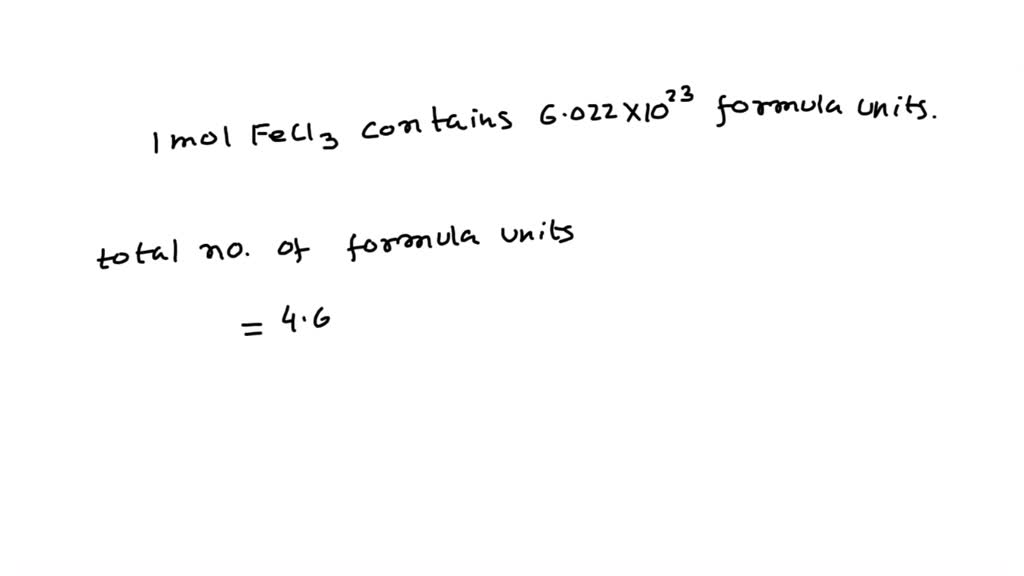 1 mol FeCl3 contains 6.022X10^23 formula units.
total no. of formula units
= 4.6